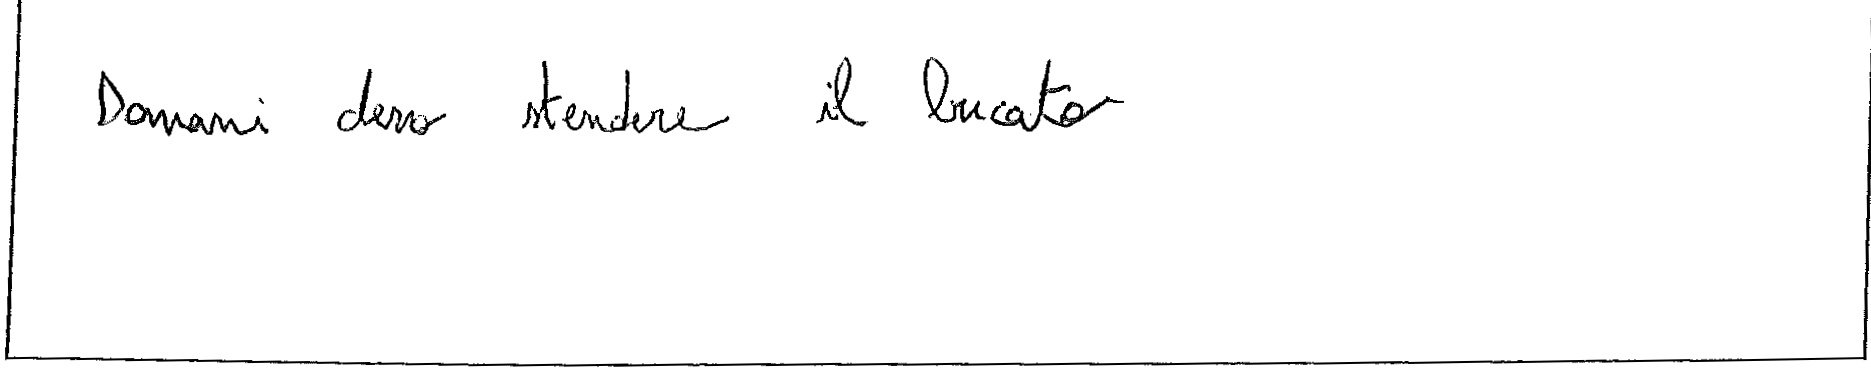 Domani devo stendere il bucato